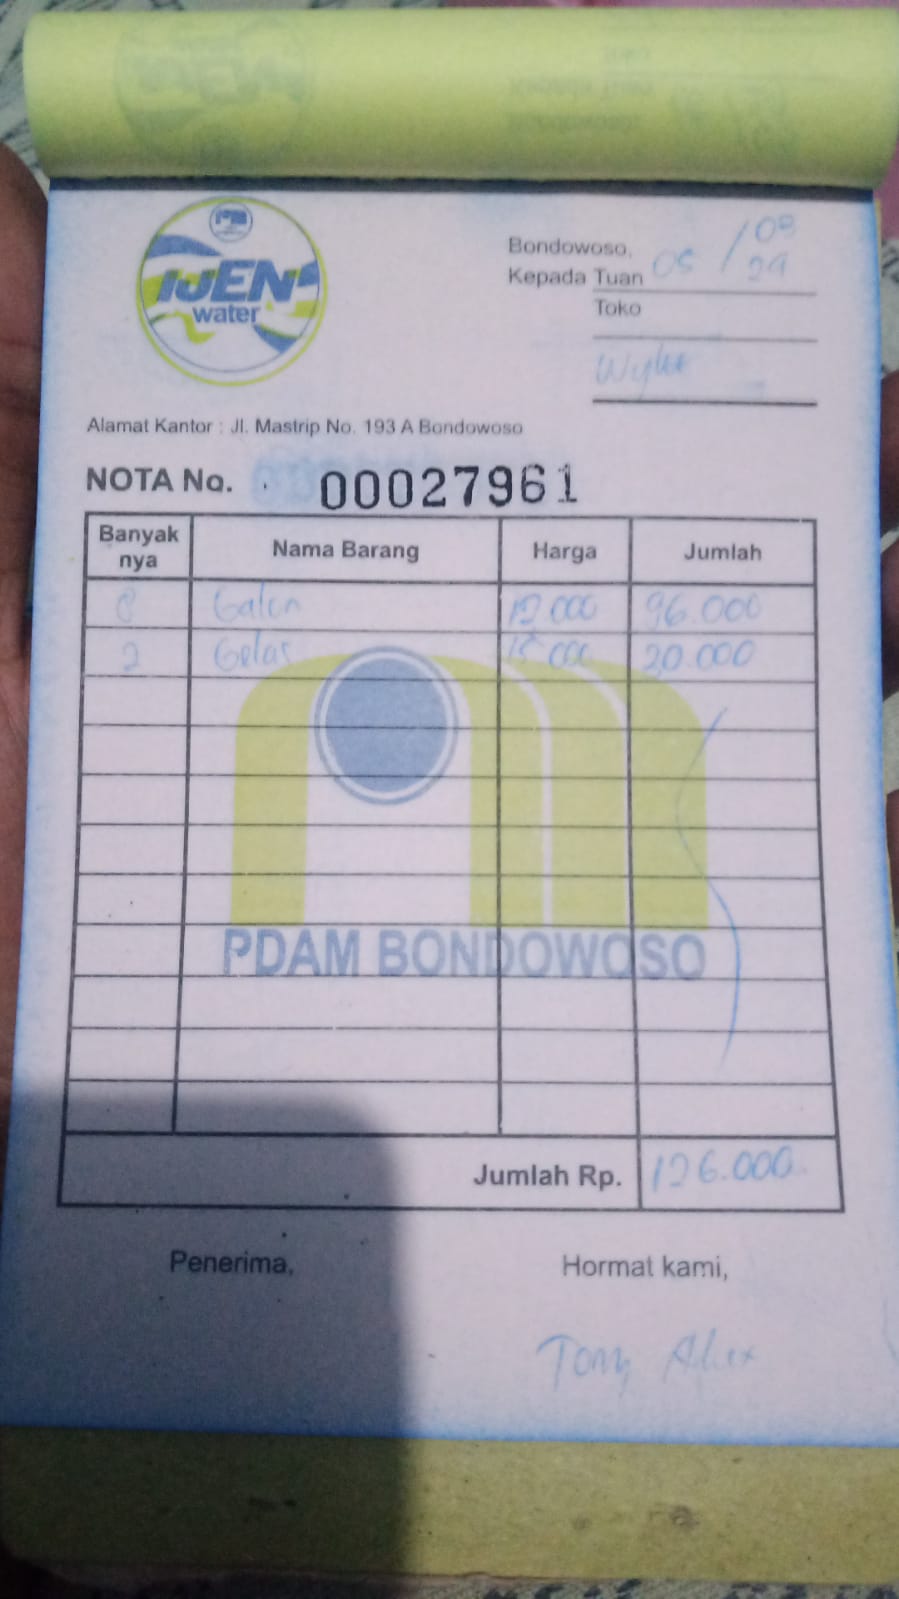 IJEN
water
Bondowoso, 05 / 09
Kepada Tuan 24
Toko
Alamat Kantor : Jl. Mastrip No. 193 A Bondowoso
NOTA No. 00027961
Banyak nya Nama Barang Harga Jumlah
8 Galon 12.000 96.000
2 Gelas 15.000 30.000
PDAM BONDOWOSO
Jumlah Rp. 126.000
Penerima, Hormat kami,
Tony Alex